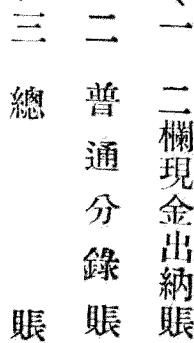 一　二欄現金出納賬
二　普通分錄賬
三　總賬